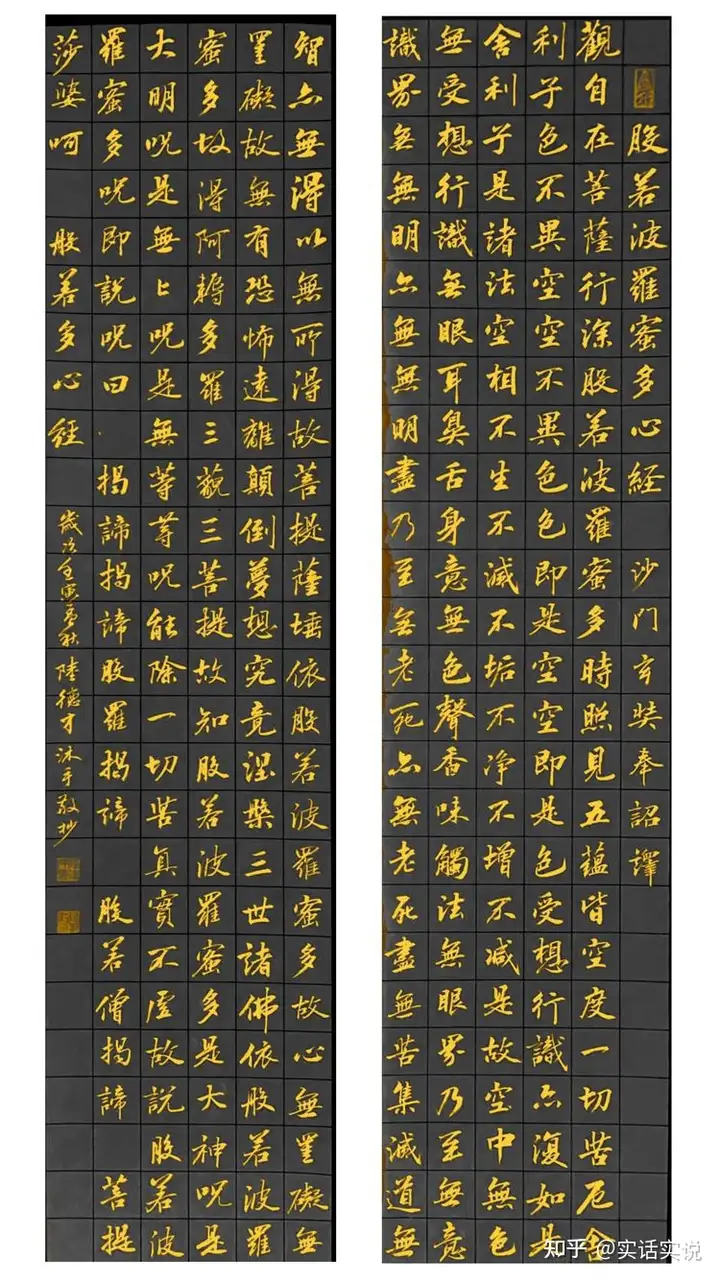 般若波羅蜜多心經 沙門玄奘奉詔譯
觀自在菩薩行深般若波羅蜜多時照見五蘊皆空度一切苦厄舍
利子色不異空空不異色色即是空空即是色受想行識亦復如是
舍利子是諸法空相不生不滅不垢不净不增不減是故空中無色
無受想行識無眼耳鼻舌身意無色聲香味觸法無眼界乃至無意
識界無無明亦無無明盡乃至無老死亦無老死盡無苦集滅道無
智亦無得以無所得故菩提薩埵依般若波羅蜜多故心無罣礙無
罣礙故無有恐怖遠離顛倒夢想究竟涅槃三世諸佛依般若波羅
蜜多故得阿耨多羅三藐三菩提故知般若波羅蜜多是大神呪是
大明呪是無上呪是無等等呪能除一切苦真實不虛故說般若波
羅蜜多呪即說呪曰 揭諦揭諦般羅揭諦 般若僧揭諦 菩提
莎婆呵 般若多心經 歲次壬寅秋 陸德才沐手敬抄
知乎 @实话实说